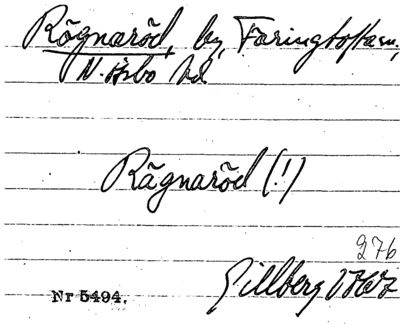 Rögnaröd, by, Färingtofta sn,
N. Åsbo hd
Rägnaröd (!)
276
Gillberg 1767
Nr 5494.